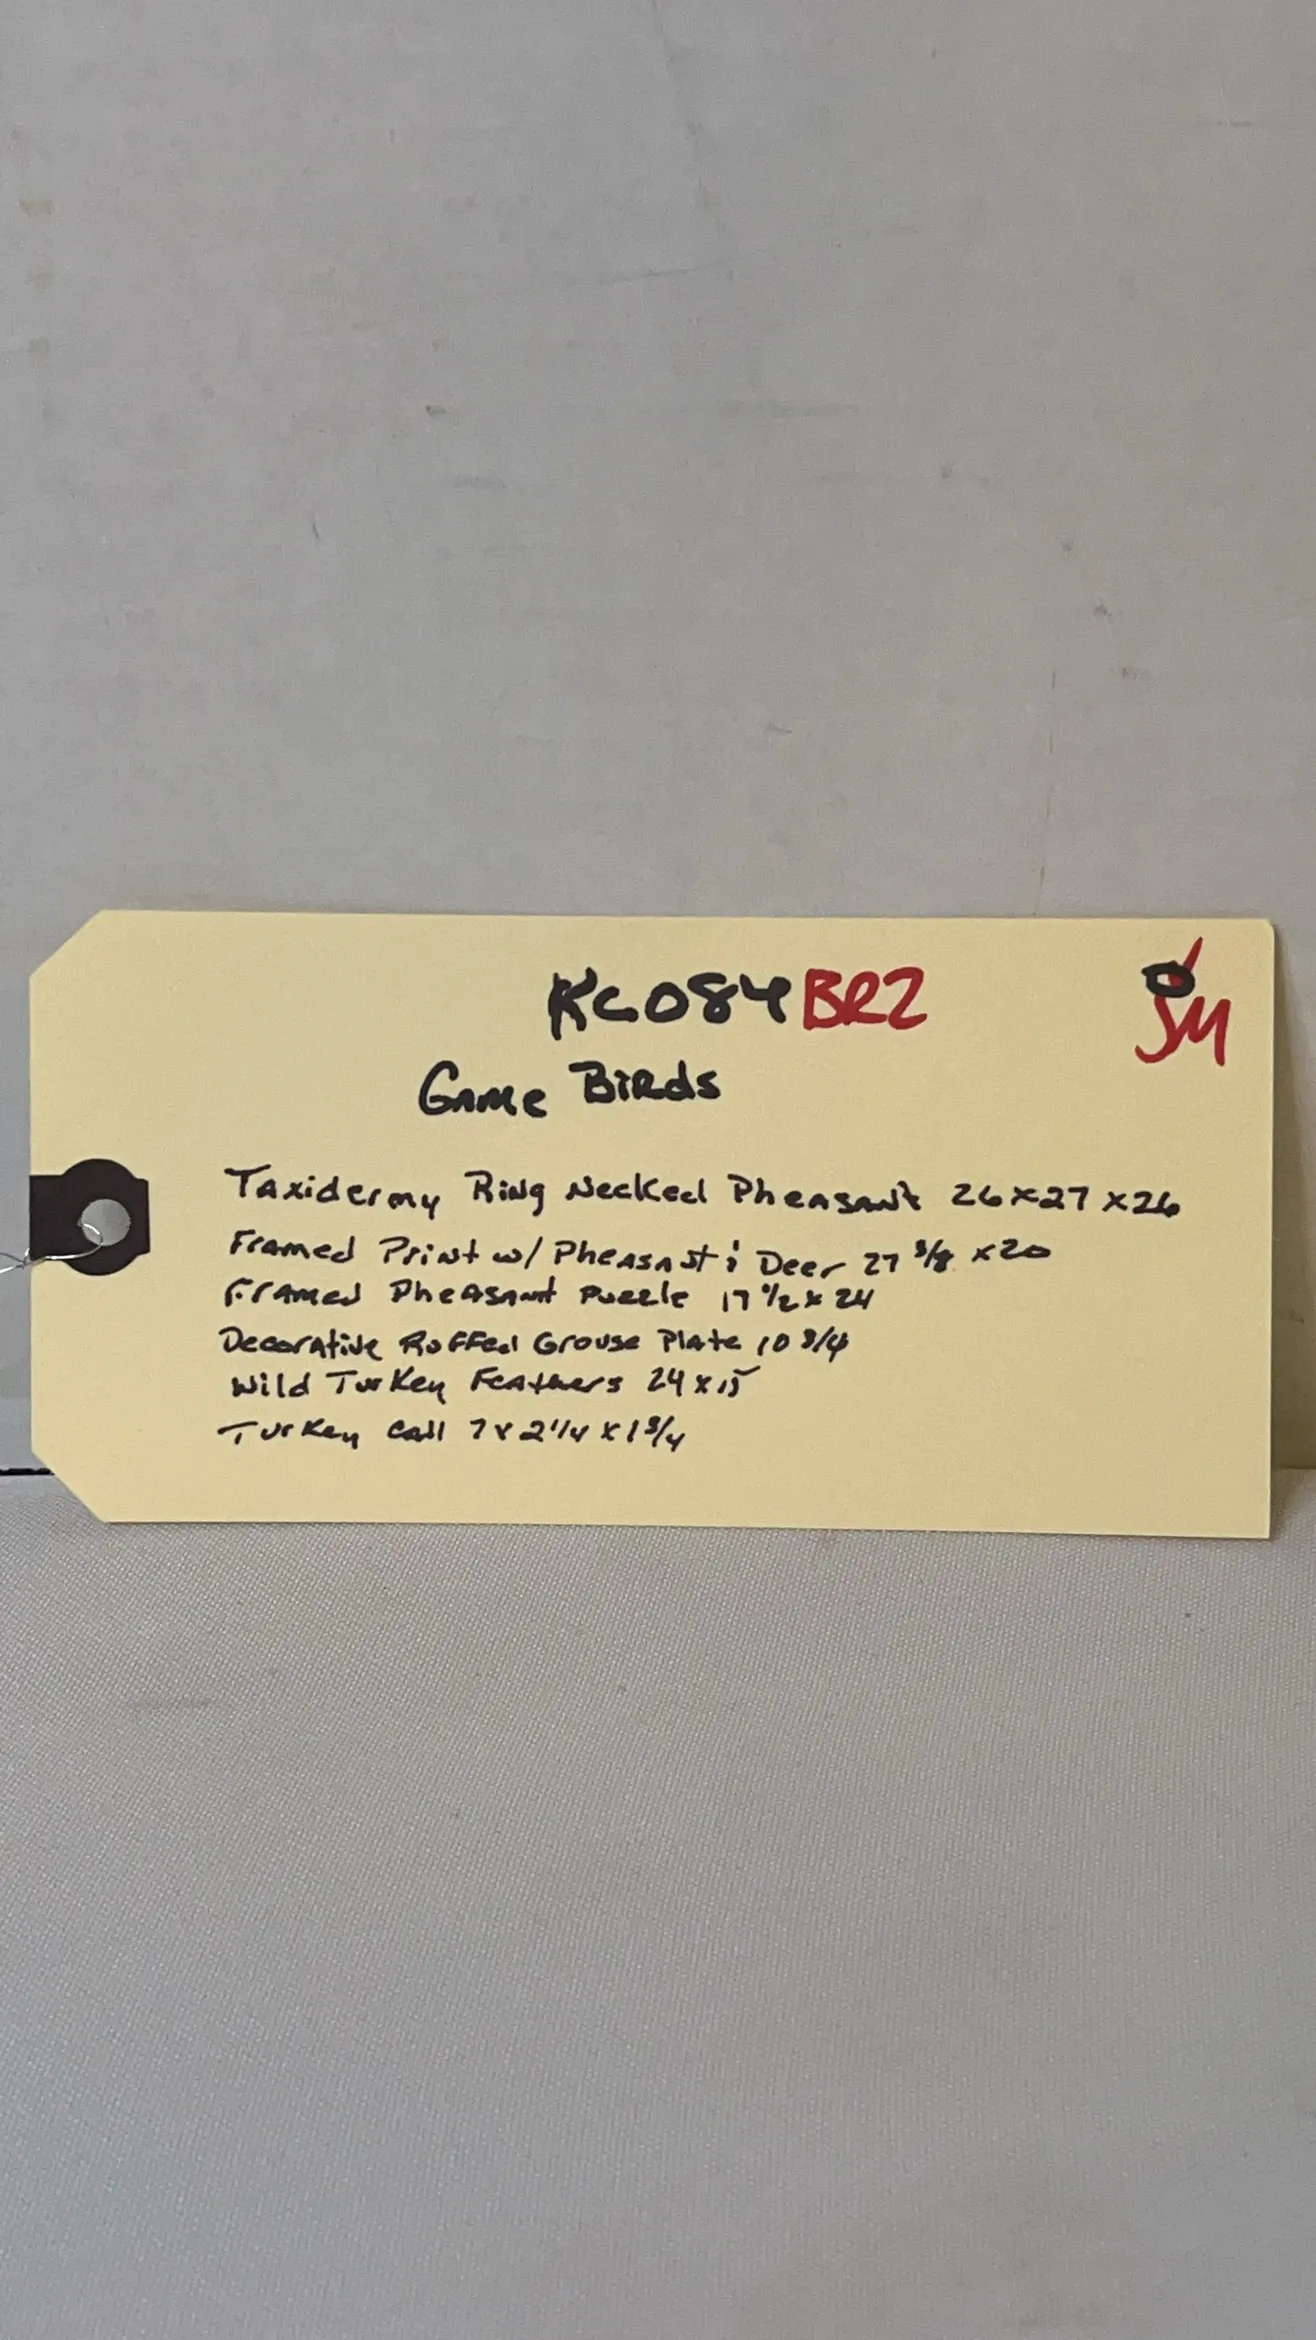 KC084BR2
JM
Game Birds
Taxidermy Ring Necked Pheasant 26x27x26
Framed Print w/ Pheasant & Deer 27 3/8 x20
Framed Pheasant Puzzle 17 1/2 x 24
Decorative Ruffed Grouse Plate 10 3/4
Wild Turkey Feathers 24 x 15
Turkey Call 7 x 2 1/4 x 1 3/4